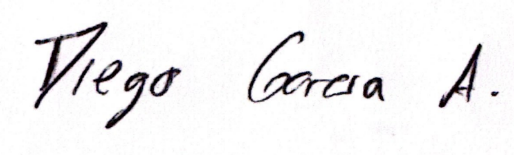 Diego Garcia A.